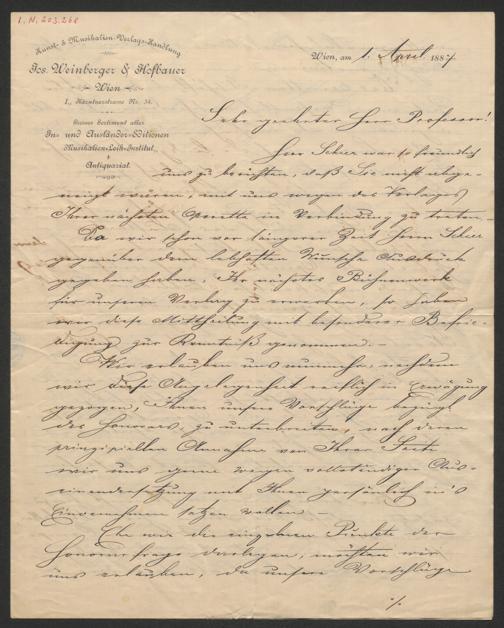 I. N. 203.268
Kunst- & Musikalien-Verlags-Handlung
Jos. Weinberger & Hofbauer
Wien
I., Kärntnerstrasse Nr. 34.
Grosses Sortiment aller
In- und Ausländer-Editionen
Musikalien-Leih-Institut
&
Antiquariat.
Wien, am 1. April 1887
Sehr geehrter Herr Professor!
Herr Scheer war so freundlich
uns zu berichten, daß Sie nicht abge-
neigt wären, mit uns wegen des Verlages
Ihrer nächsten Operette in Verbindung zu treten.
Da wir schon vor längerer Zeit Herrn Scheer
gegenüber dem lebhaften Wunsche Ausdruck
gegeben haben, Ihr nächstes Bühnenwerk
für unseren Verlag zu erwerben, so haben
wir diese Mittheilung mit besonderer Befrie-
digung zur Kenntniß genommen. –
Wir erlauben uns nunmehr, nachdem
wir diese Angelegenheit reiflich in Erwägung
gezogen, Ihnen unsere Vorschläge bezügl.
des Honorars zu unterbreiten, nach deren
prinzipiellen Annahme von Ihrer Seite
wir uns gerne wegen vollständiger Aus-
einandersetzung mit Ihnen persönlich in's
Einvernehmen setzen wollen. –
Ehe wir die einzelnen Punkte der
Honorarfrage darlegen, möchten wir
uns erlauben, da unsere Vorschläge
./.